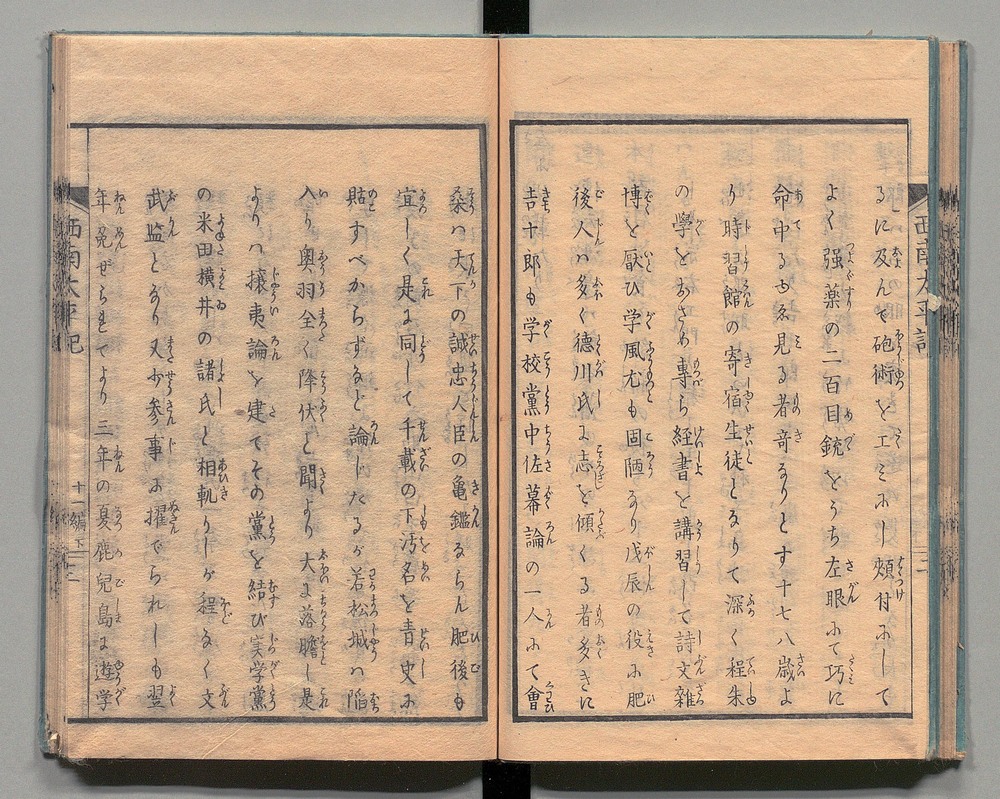 るに及んで砲術を工ミにし頬付にして
よく強薬の二百目銃をうち左眼にて巧に
命中るも名見る者竒なりとす十七八歳よ
り時習館の寄宿生徒となりて深く程朱
の學をおさめ專ら経書を講習して詩文雜
博を厭ひ学風尤も固陋なり戊辰の役に肥
後人ハ多く德川氏に志を傾くる者多きに
吉十郎も学校黨中佐幕論の一人にて會
桑ハ天下の誠忠人臣の亀鑑ならん肥後も
宜しく是に同して千載の下汚名を青史に
貽すべからずなど論じたるが若松城ハ陥
入り奥羽全く降伏と聞より大に落膽し是
よりハ攘夷論を建てその黨を結び実学黨
の米田横井の諸氏と相軋りしが程なく文
武監となり又少参事に擢でられしも翌
年免ぜられてより三年の夏鹿兒島に遊学
西南太平記
十一編下
二
西南太平記